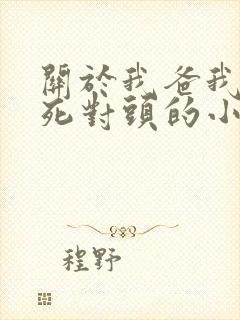 關於我爸我
死對頭的小
程野